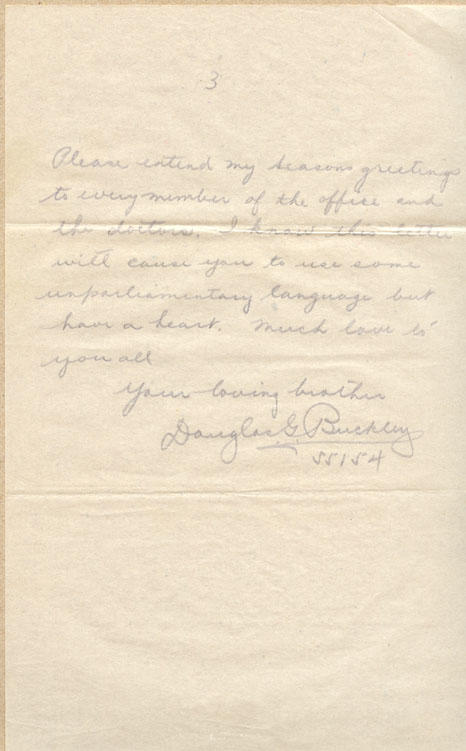 3
Please extend my seasons greetings
to every member of the office and
the doctors. I know this letter
will cause you to use some
unparliamentary language but
have a heart. Much love to
you all
Your loving brother
Douglas G. Buckley
55154